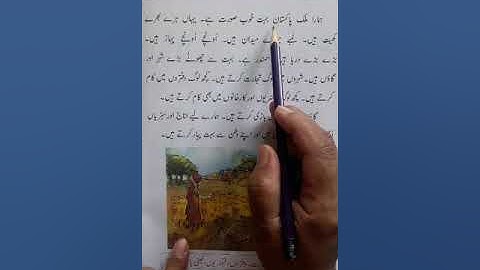 ہمارا ملک پاکستان بہت خوب صورت ہے۔ یہاں ہرے بھرے
کھیت ہیں۔ لمبے میدان ہیں۔ اُونچے اُونچے پہاڑ ہیں۔
بڑے بڑے دریا سمندر ہے۔ بہت سے چھوٹے بڑے شہر اور
گاؤں ہیں۔ شہروں میں لوگ تجارت کرتے ہیں۔ کچھ لوگ دفتروں میں کام
کرتے ہیں۔ کچھ لوگ اور کارخانوں میں بھی کام کرتے ہیں۔
باڑی کرتے ہیں۔ ہمارے لیے اناج اور سبزیاں
ہیں اور اپنے وطن سے بہت پیار کرتے ہیں۔